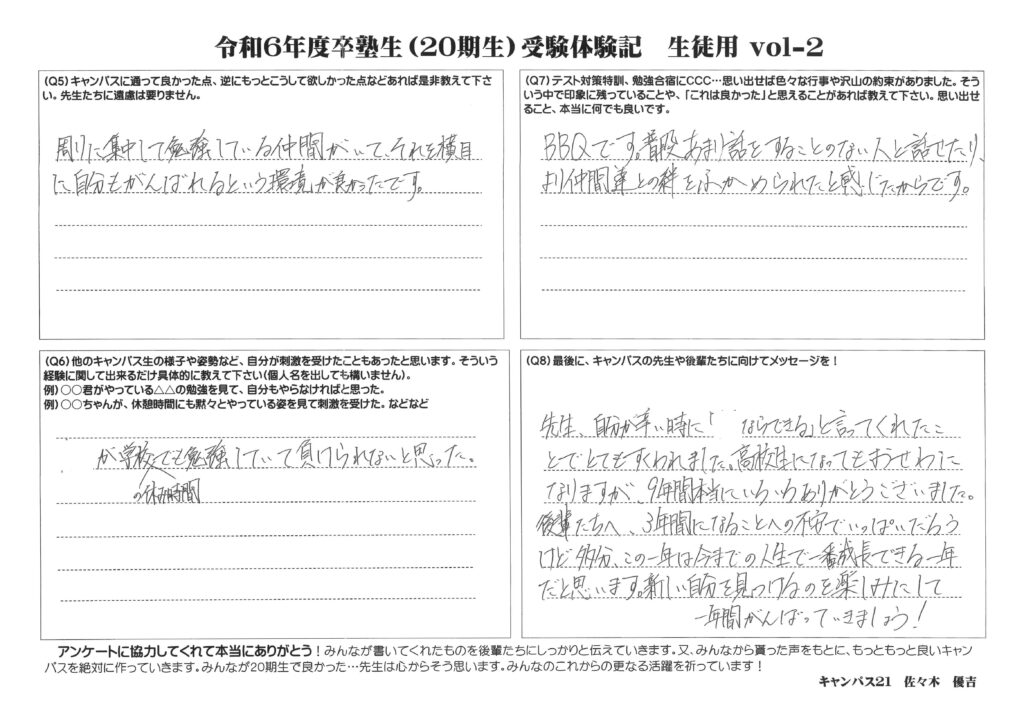 令和6年度卒塾生（20期生）受験体験記　生徒用 vol-2
（Q5）キャンパスに通って良かった点、逆にもっとこうして欲しかった点などあれば是非教えて下さ
い。先生たちに遠慮は要りません。
周りに集中して勉強している仲間がいて、それを横目
に自分もがんばれるという環境が良かったです。
（Q6）他のキャンパス生の様子や姿勢など、自分が刺激を受けたこともあったと思います。そういう
経験に関して出来るだけ具体的に教えて下さい（個人名を出しても構いません）。
例）○○君がやっている△△の勉強を見て、自分もやらなければと思った。
例）○○ちゃんが、休憩時間にも黙々とやっている姿を見て刺激を受けた。などなど
が学校でも勉強していて負けられないと思った。
の休み時間
（Q7）テスト対策特訓、勉強合宿にCCC…思い出せば色々な行事や沢山の約束がありました。そう
いう中で印象に残っていることや、「これは良かった」と思えることがあれば教えて下さい。思い出せ
ること、本当に何でも良いです。
BBQです。普段あまり話をすることのない人と話せたり、
より仲間達との絆をふかめられたと感じたからです。
（Q8）最後に、キャンパスの先生や後輩たちに向けてメッセージを！
先生、自分が辛い時に「　ならできる」と言ってくれたこ
とでとてもすくわれました。高校生になってもおせわに
なりますが、9年間本当にいろいろありがとうございました。
後輩たちへ、3年間になることへの不安でいっぱいだろう
けど多分、この一年は今までの人生で一番成長できる一年
だと思います。新しい自分を見つけるのを楽しみにして
一年間がんばっていきましょう！
アンケートに協力してくれて本当にありがとう！みんなが書いてくれたものを後輩たちにしっかりと伝えていきます。又、みんなから貰った声をもとに、もっともっと良いキャン
パスを絶対に作っていきます。みんなが20期生で良かった…先生は心からそう思います。みんなのこれからの更なる活躍を祈っています！
キャンパス21　佐々木　優吉